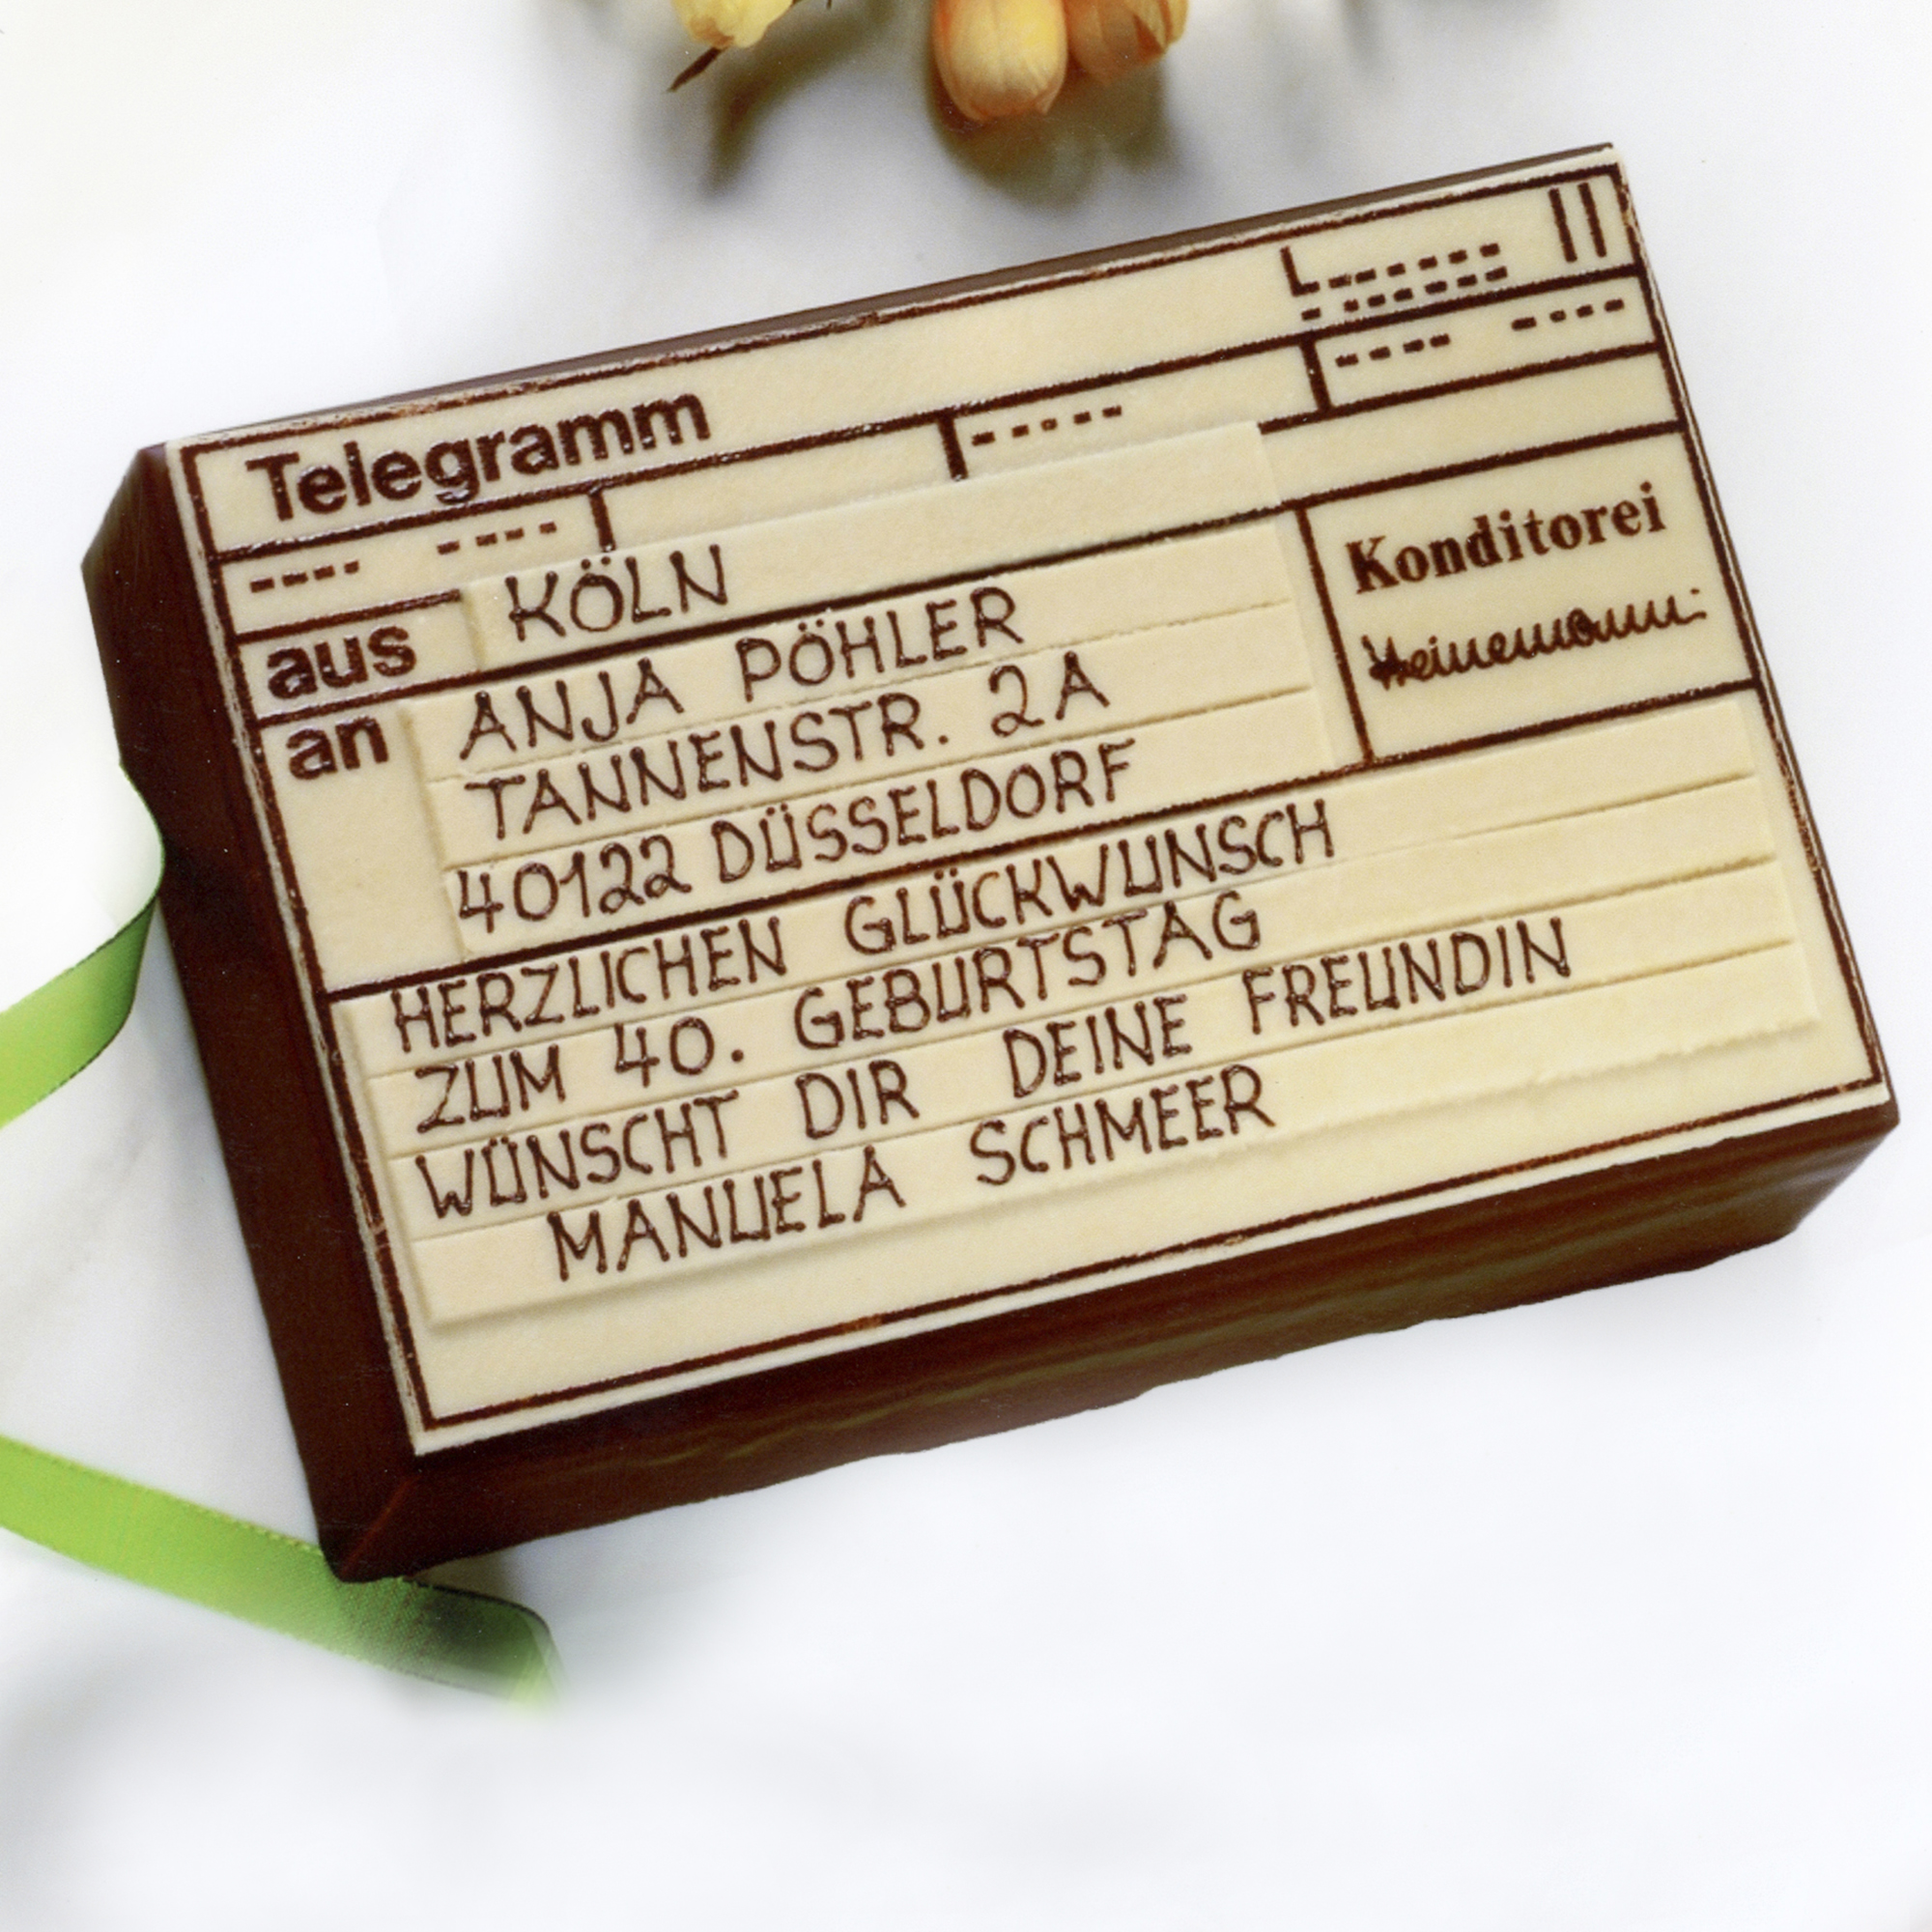 Telegramm
aus KÖLN
an ANJA PÖHLER
TANNENSTR. 2A
40122 DÜSSELDORF
Konditorei
Heinemann
HERZLICHEN GLÜCKWUNSCH
ZUM 40. GEBURTSTAG
WÜNSCHT DIR DEINE FREUNDIN
MANUELA SCHMEER